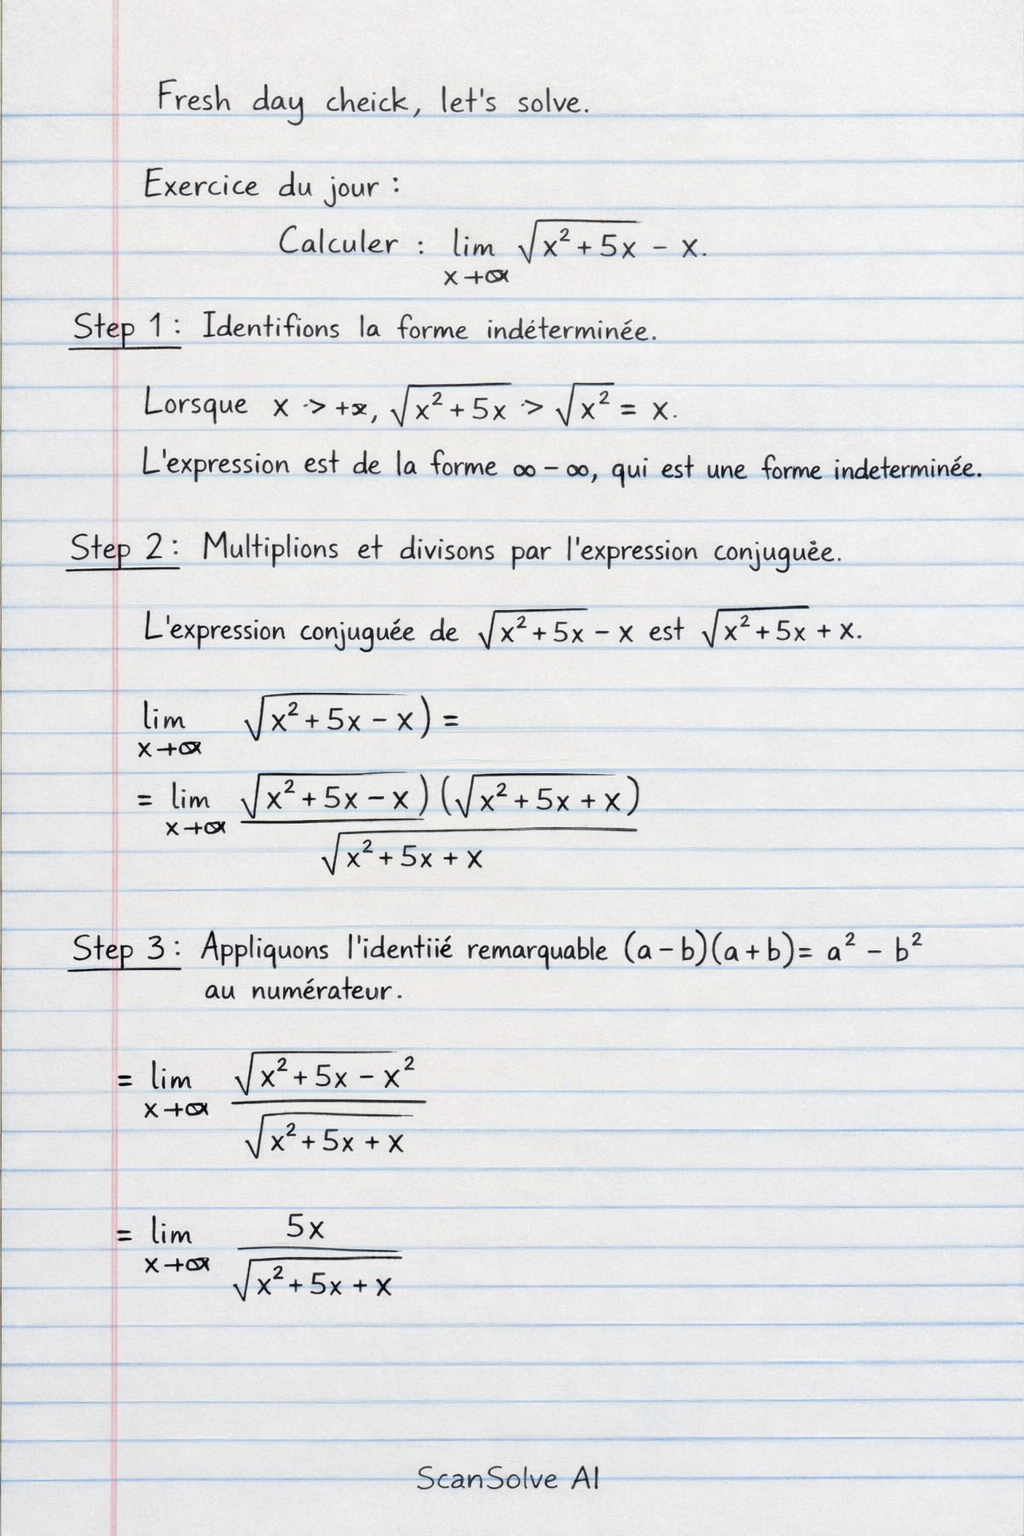 Fresh day cheick, let's solve.
Exercice du jour :
Calculer : lim √(x² + 5x) − x.
x→∞
Step 1 : Identifions la forme indéterminée.
Lorsque x -> +∞, √(x² + 5x) -> √(x²) = x.
L'expression est de la forme ∞ − ∞, qui est une forme indeterminée.
Step 2 : Multiplions et divisons par l'expression conjuguée.
L'expression conjuguée de √(x² + 5x) − x est √(x² + 5x) + x.
lim √(x² + 5x − x) =
x→∞
= lim √(x² + 5x − x) (√(x² + 5x + x)
x→∞
√(x² + 5x + x
Step 3 : Appliquons l'identiié remarquable (a − b)(a + b) = a² − b²
au numérateur.
= lim √(x² + 5x − x²
x→∞
√(x² + 5x + x
= lim 5x
x→∞
√(x² + 5x + x
ScanSolve AI